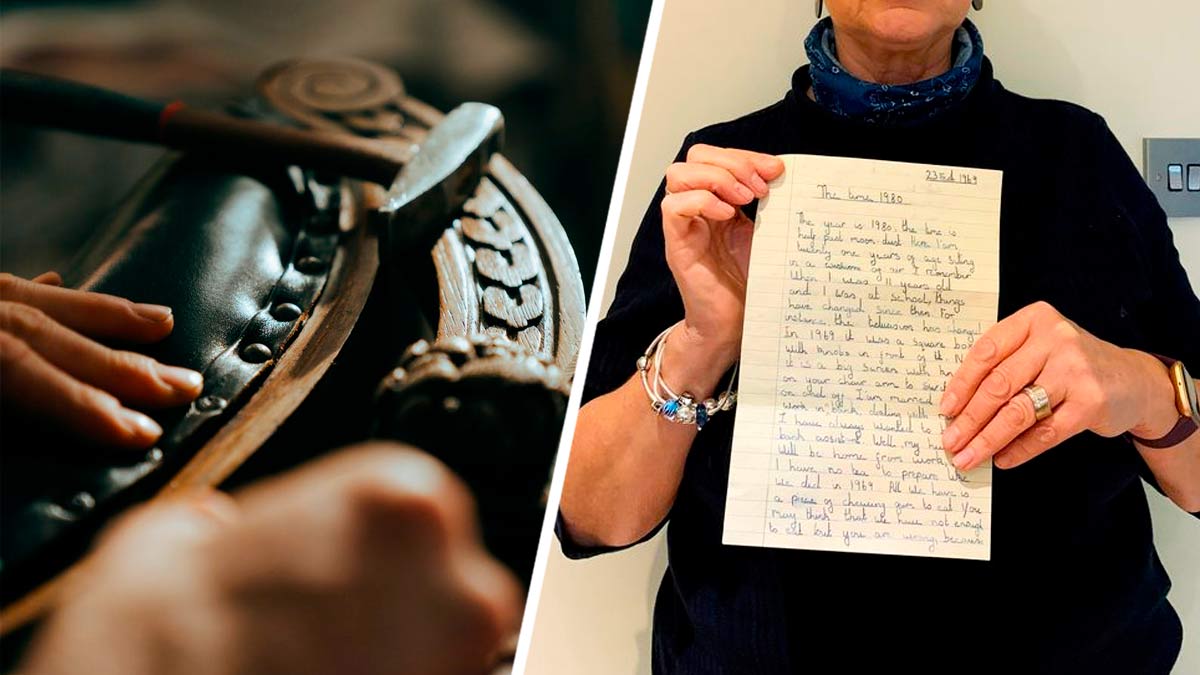 23 Feb 1969
The time 1980
The year is 1980. the time is
half past moon-dust Here I am
twenty one years of age siting
in a cushion of air I remember
When I was 11 years old
and I was at school, things
have changed since then For
instance the television has changed
In 1969 it was a square box
with knobs in front of it. N
it is a big screen with
on your chair arm to
on and off. I am married
work in bank dealing with
I have always wanted to
bank assist Well, my hu
Will be home from work,
I have no tea to prepare like
We did in 1969. All We have is
a piece of chewing gum to eat You
may think that we have not enough
to eat but you are wrong, because